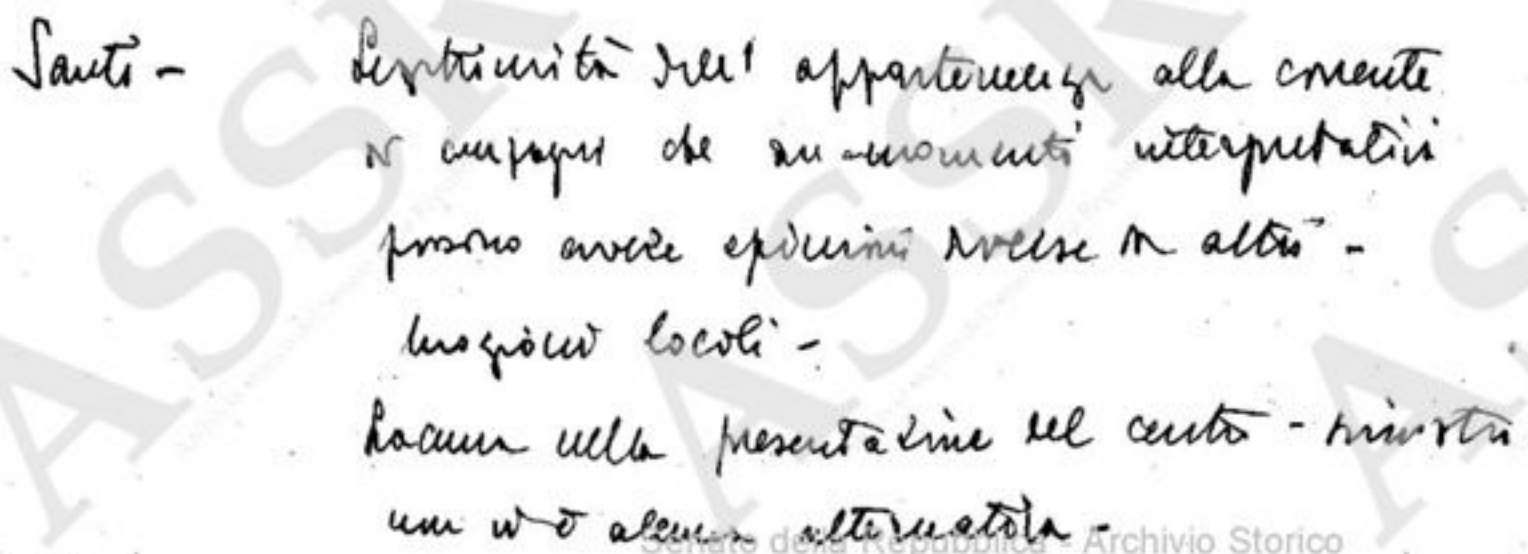 Santi - Legittimità dell'appartenenza alla corrente
di compagni che su momenti interpretativi
possono avere opinioni diverse da altri -
locali -
Lacuna nella presentazione del centro-sinistra
non vi è alcuna alternativa -
Senato della Repubblica - Archivio Storico